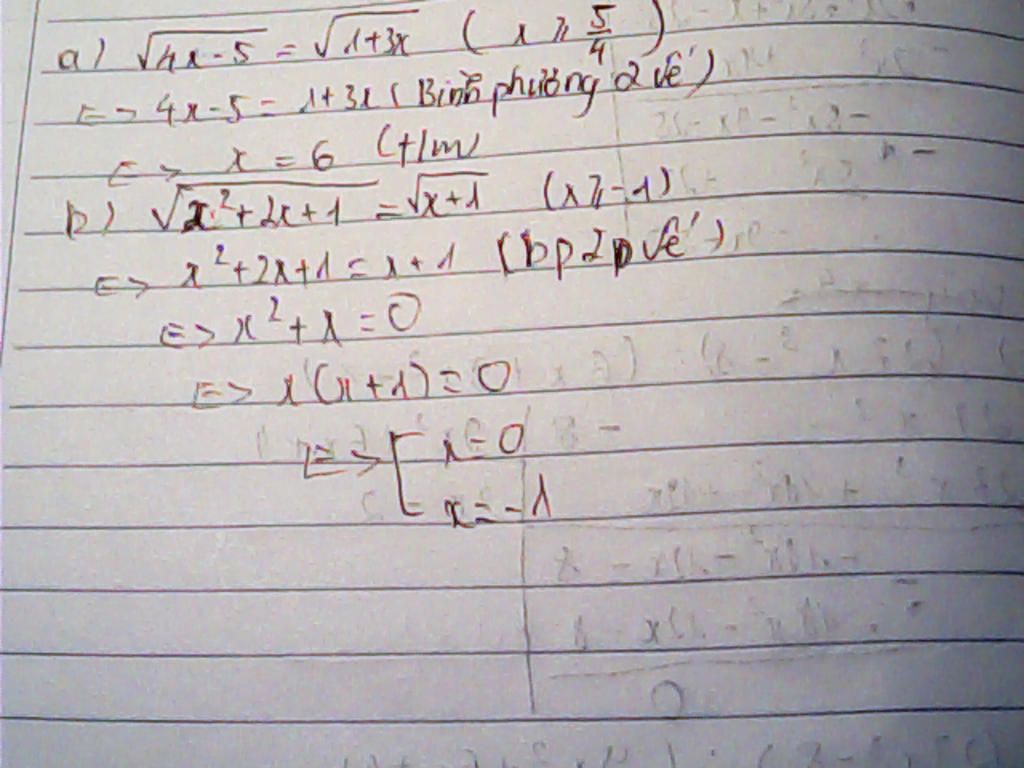 a) √4x-5 = √1+3x ( x ⩾ 5/4 )
<=> 4x-5 = 1+3x ( Bình phương 2 vế )
<=> x = 6 (t/m)
b) √x²+2x+1 = √x+1 (x ⩾ -1)
<=> x²+2x+1 = x+1 (bp 2 vế)
<=> x²+x = 0
<=> x(x+1) = 0
<=> [ x = 0
x = -1